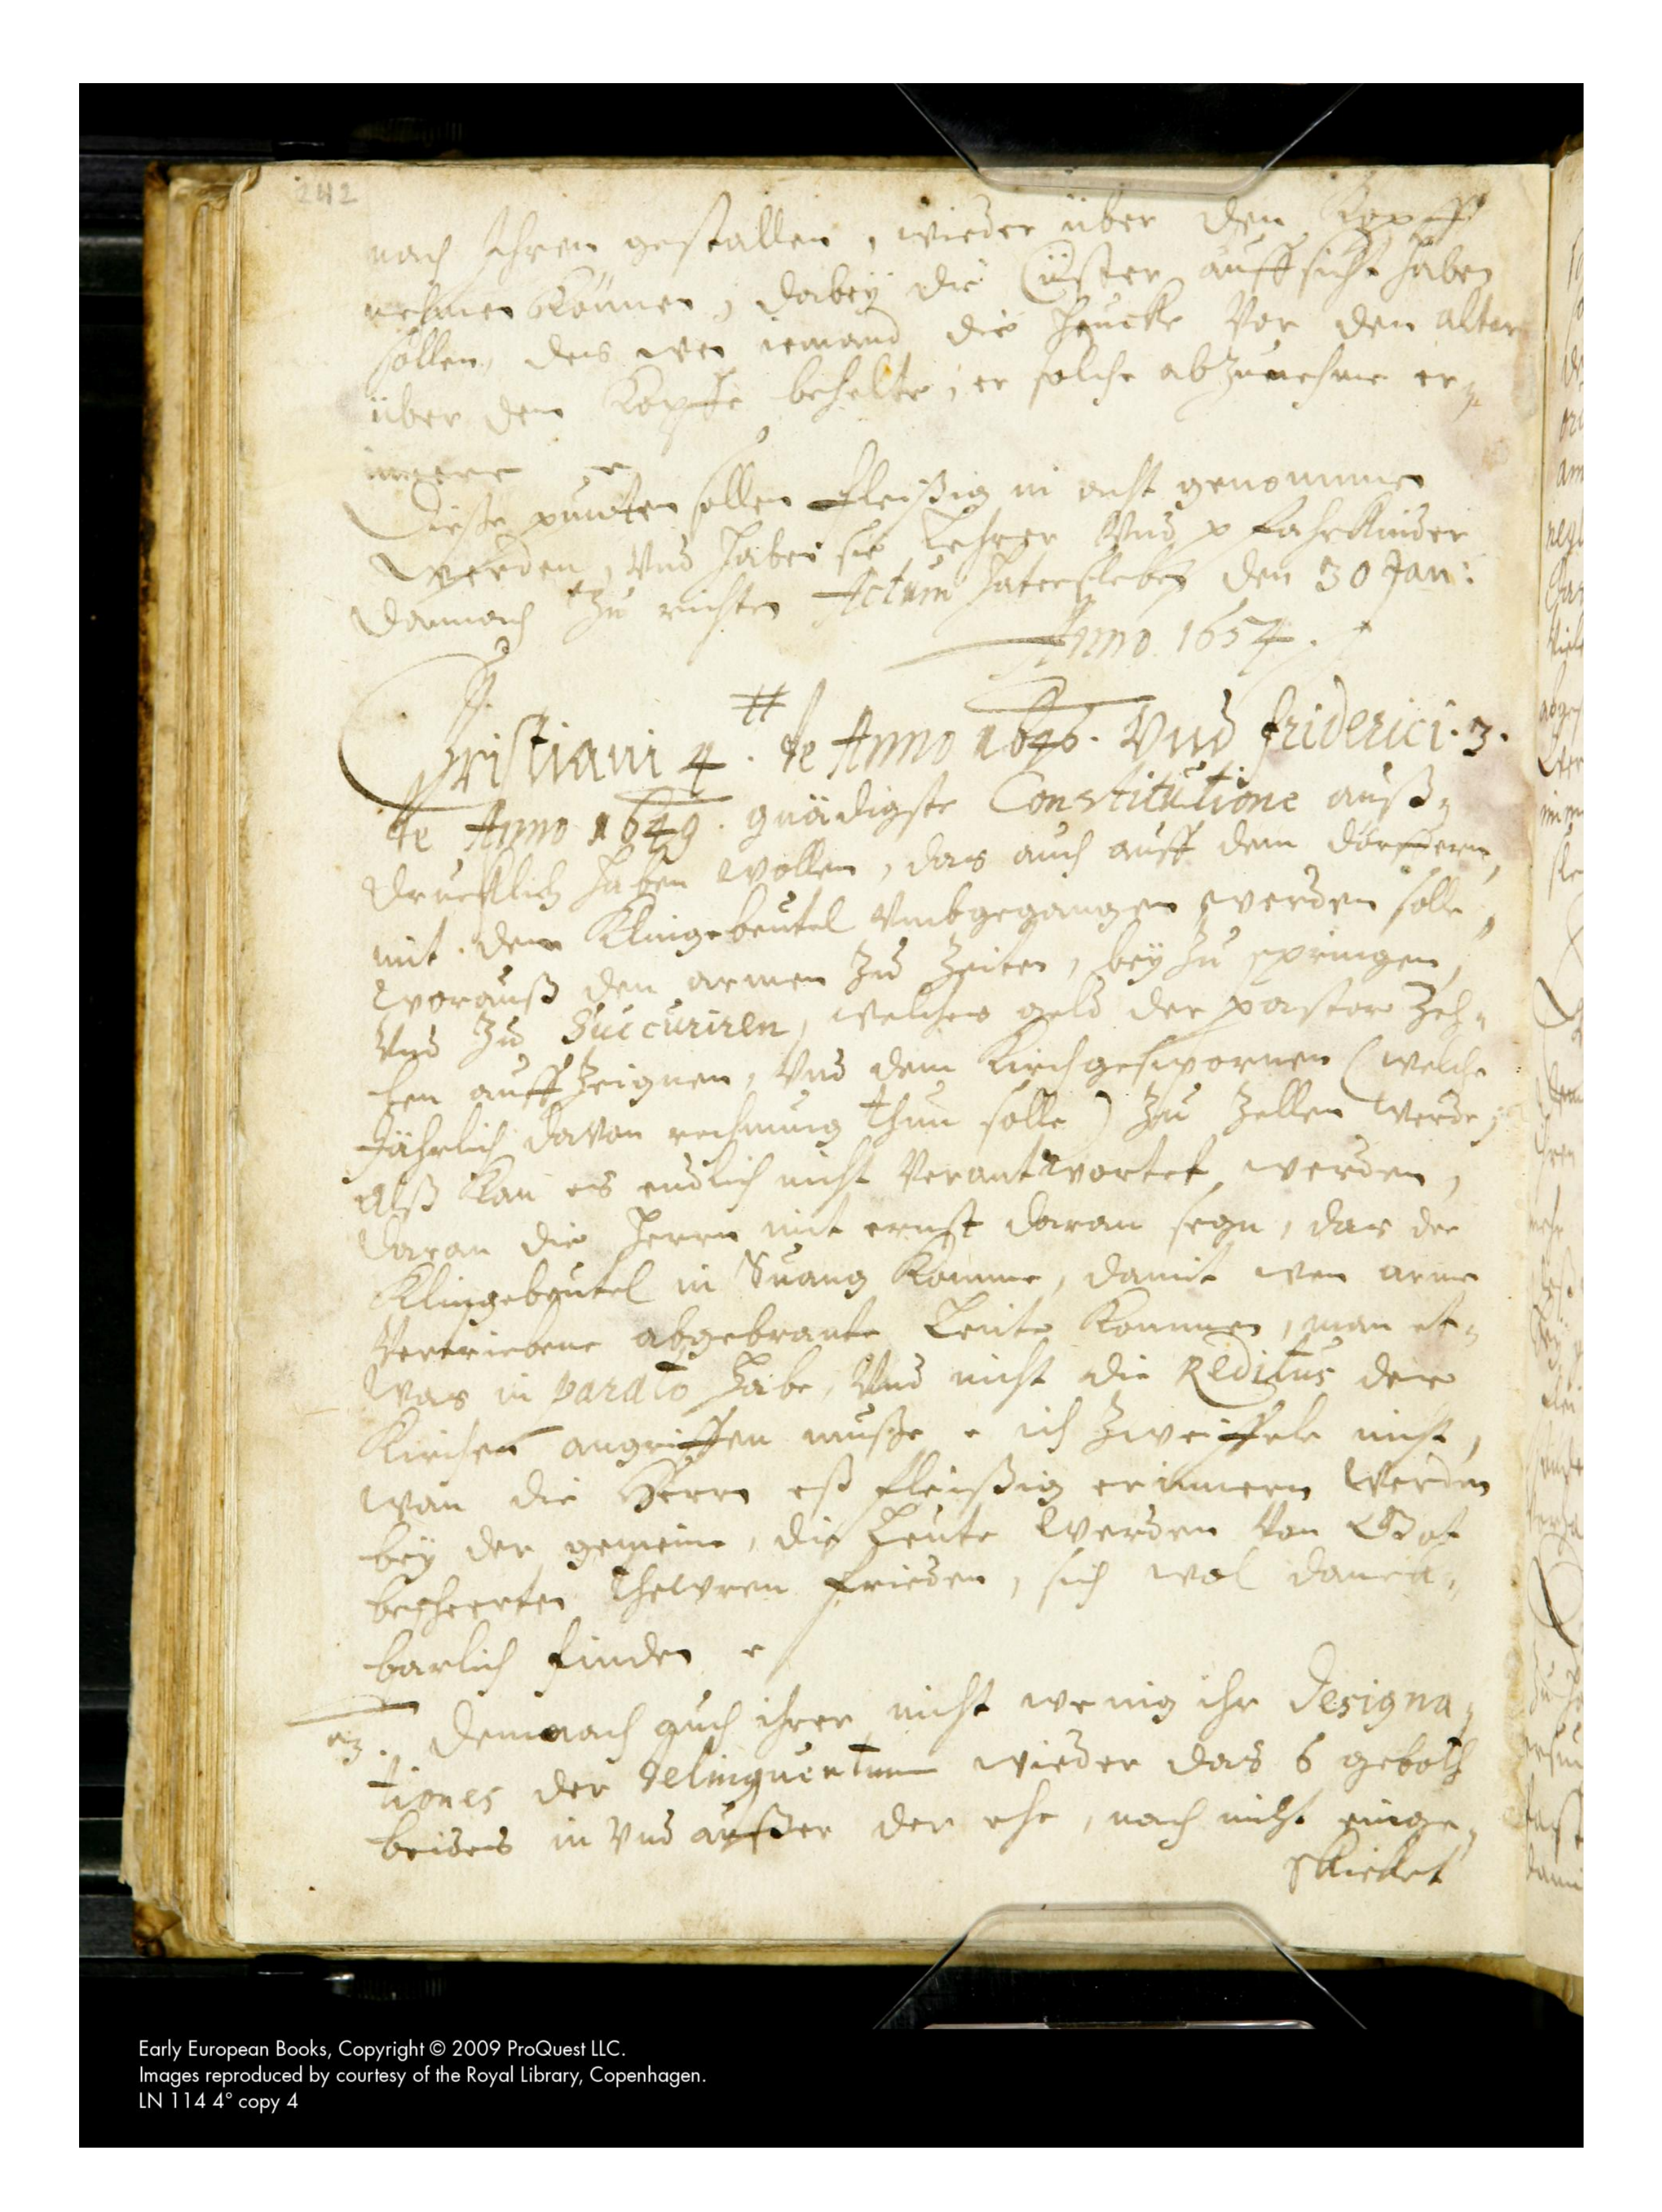 242
nach ihrem gefallen, wieder über den Kopff
nehmen können, dabey die Cüster auffsicht haben
sollen, das wen iemand die heucke vor den altar
über dem Kopffe behelte, er solche abzunehmen er-
innere
Diese puncten sollen fleißig in acht genommen
werden, und haben sie Lehrer und pfahrkinder
darnach zu richten Actum Hatersleben den 30 Jan:
Anno 1654.
Christiani 4. de Anno 1646. Und friderici. 3.
de Anno 1649. gnädigste Constitutione auß-
drucklich haben wollen, das auch auff dem dörfferen,
mit dem Klingebeutel umbgegangen werden solle,
worauß den armen zu zeiten, bey zu springen,
und zu Succuriren, welches geld der pastor zeh-
len auffzeignen, und dem Kirchgeswornen (welche
Jährlich davon rechnung thun solle) zu zellen werde,
alß kan es endlich nicht verantwortet werden,
daran die herrn mit ernst daran seyn, das der
Klingebeutel in Swang komme, damit wen arme
vertriebene abgebrante Leute kommen, man et-
was in parato habe, und nicht die Reditus der
Kirchen angriffen musse ich zweiffele nicht,
wan die Herrn eß fleißig erinneren werden
bey der gemeine, die Leute werden von Got
bescheerten thewren frieden, sich wol danck-
barlich finden
Demnach auch ihrer nicht wenig ihr designa-
tiones der delinquentum wieder das 6 geboth
beides in und außer der ehe, noch nicht einge-
schicket
Early European Books, Copyright © 2009 ProQuest LLC.
Images reproduced by courtesy of the Royal Library, Copenhagen.
LN 114 4° copy 4